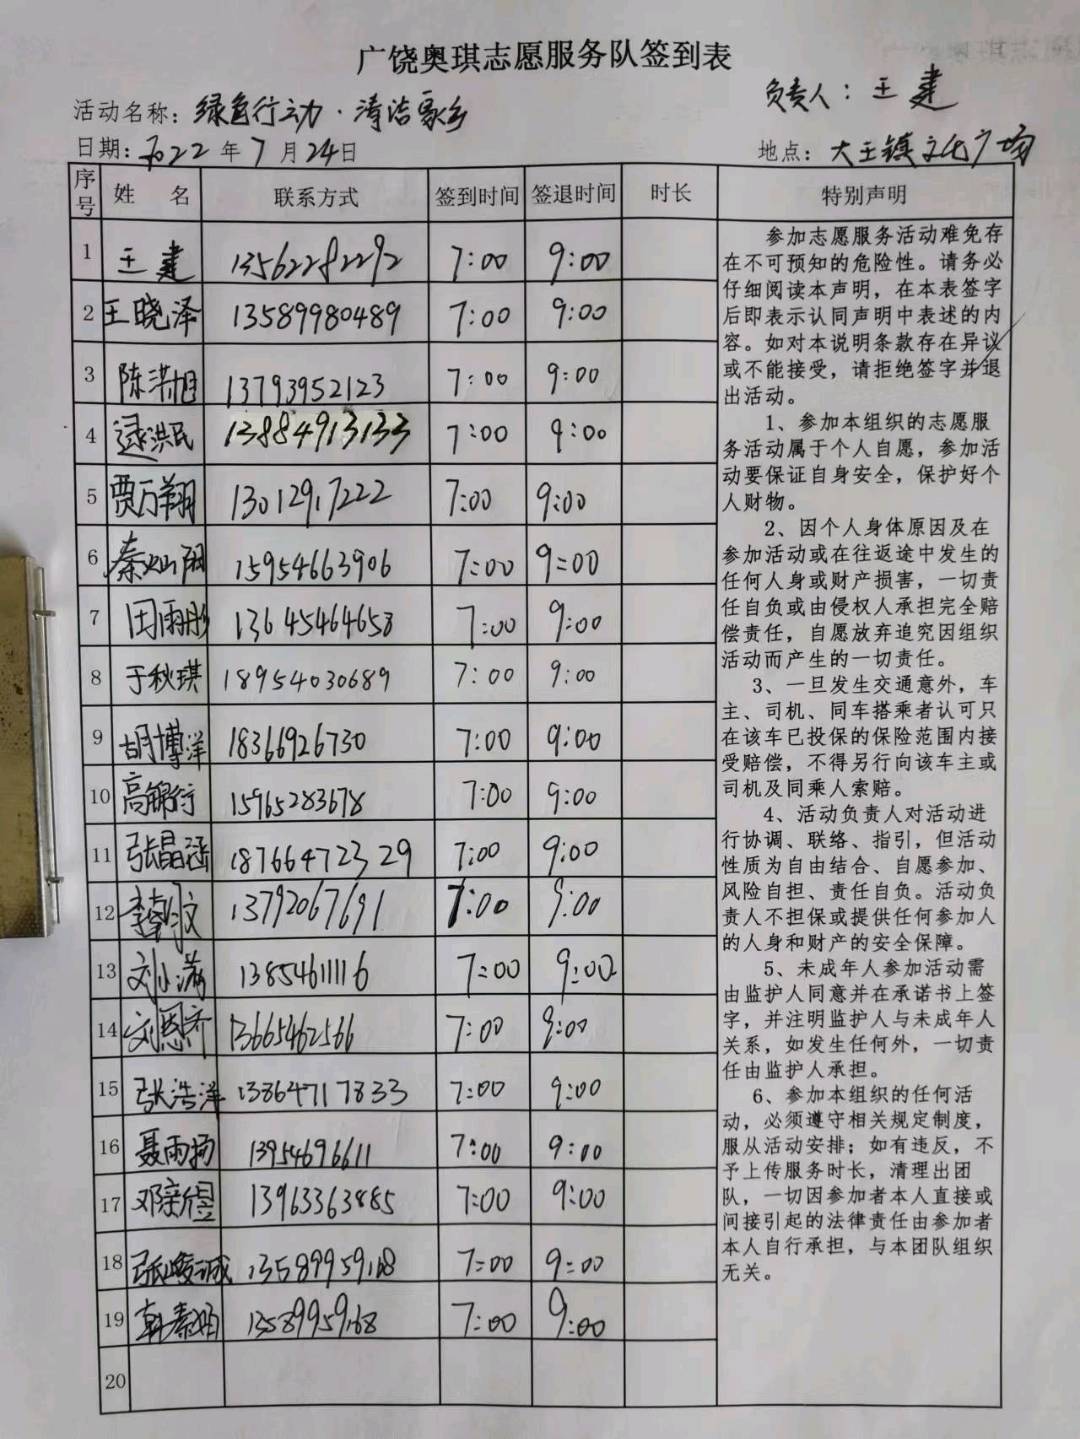 广饶奥琪志愿服务队签到表
活动名称：绿色行动·清洁家乡
负责人：王建
日期：2022年7月24日
地点：大王镇文化广场
序号 姓 名 联系方式 签到时间 签退时间 时长 特别声明
1 王建 13562282292 7:00 9:00
2 王晓泽 13589980489 7:00 9:00
3 陈洪旭 13793952123 7:00 9:00
4 逯洪民 13884913133 7:00 9:00
5 贾万翔 13012917222 7:00 9:00
6 秦灿阳 15954663906 7:00 9:00
7 田雨彤 13645464658 7:00 9:00
8 于秋琪 18954030689 7:00 9:00
9 胡博洋 18366926730 7:00 9:00
10 高锦行 15965283678 7:00 9:00
11 张晶涵 18766472329 7:00 9:00
12 13792067691 7:00 9:00
13 刘小满 13854611116 7:00 9:00
14 刘恩齐 13665462566 7:00 9:00
15 张浩洋 13864717833 7:00 9:00
16 聂雨扬 13954696611 7:00 9:00
17 邓新煜 13963363885 7:00 9:00
18 张峻诚 13589959168 7:00 9:00
19 韩秦灿 13589959168 7:00 9:00
20
参加志愿服务活动难免存
在不可预知的危险性。请务必
仔细阅读本声明，在本表签字
后即表示认同声明中表述的内
容。如对本说明条款存在异议
或不能接受，请拒绝签字并退
出活动。
1、参加本组织的志愿服
务活动属于个人自愿，参加活
动要保证自身安全，保护好个
人财物。
2、因个人身体原因及在
参加活动或在往返途中发生的
任何人身或财产损害，一切责
任自负或由侵权人承担完全赔
偿责任，自愿放弃追究因组织
活动而产生的一切责任。
3、一旦发生交通意外，车
主、司机、同车搭乘者认可只
在该车已投保的保险范围内接
受赔偿，不得另行向该车主或
司机及同乘人索赔。
4、活动负责人对活动进
行协调、联络、指引，但活动
性质为自由结合、自愿参加、
风险自担、责任自负。活动负
责人不担保或提供任何参加人
的人身和财产的安全保障。
5、未成年人参加活动需
由监护人同意并在承诺书上签
字，并注明监护人与未成年人
关系，如发生任何外，一切责
任由监护人承担。
6、参加本组织的任何活
动，必须遵守相关规定制度，
服从活动安排；如有违反，不
予上传服务时长，清理出团
队，一切因参加者本人直接或
间接引起的法律责任由参加者
本人自行承担，与本团队组织
无关。